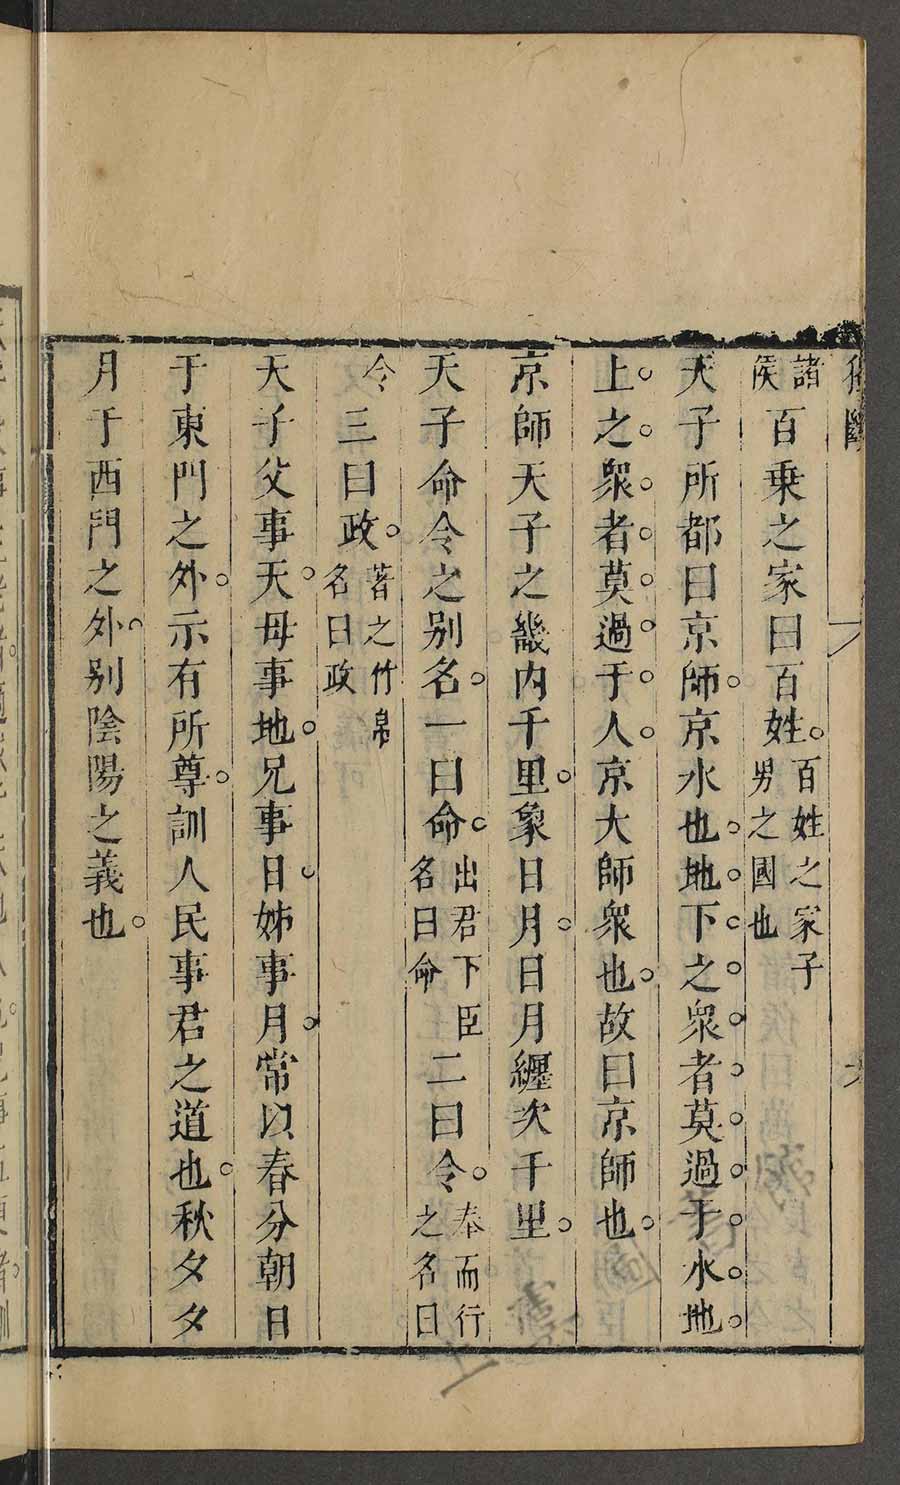 諸侯百乗之家曰百姓。百姓之家子男之國也
天子所都曰京師。京水也。地。下。之。衆。者。莫。過。于。水。地。
上。之。衆。者。莫。過。于。人。京大師衆也。故曰京師也。
京師天子之畿内千里。象日月。日月纒次千里。
天子命令之别名。一曰命。出君下臣名曰命二曰令。奉而行之名曰
令三曰政。著之竹帛名曰政
天子父事天。母事地。兄事日。姊事月。常以春分朝日
于東門之外。示有所尊。訓人民事君之道也。秋夕夕
月于西門之外。别陰陽之義也。